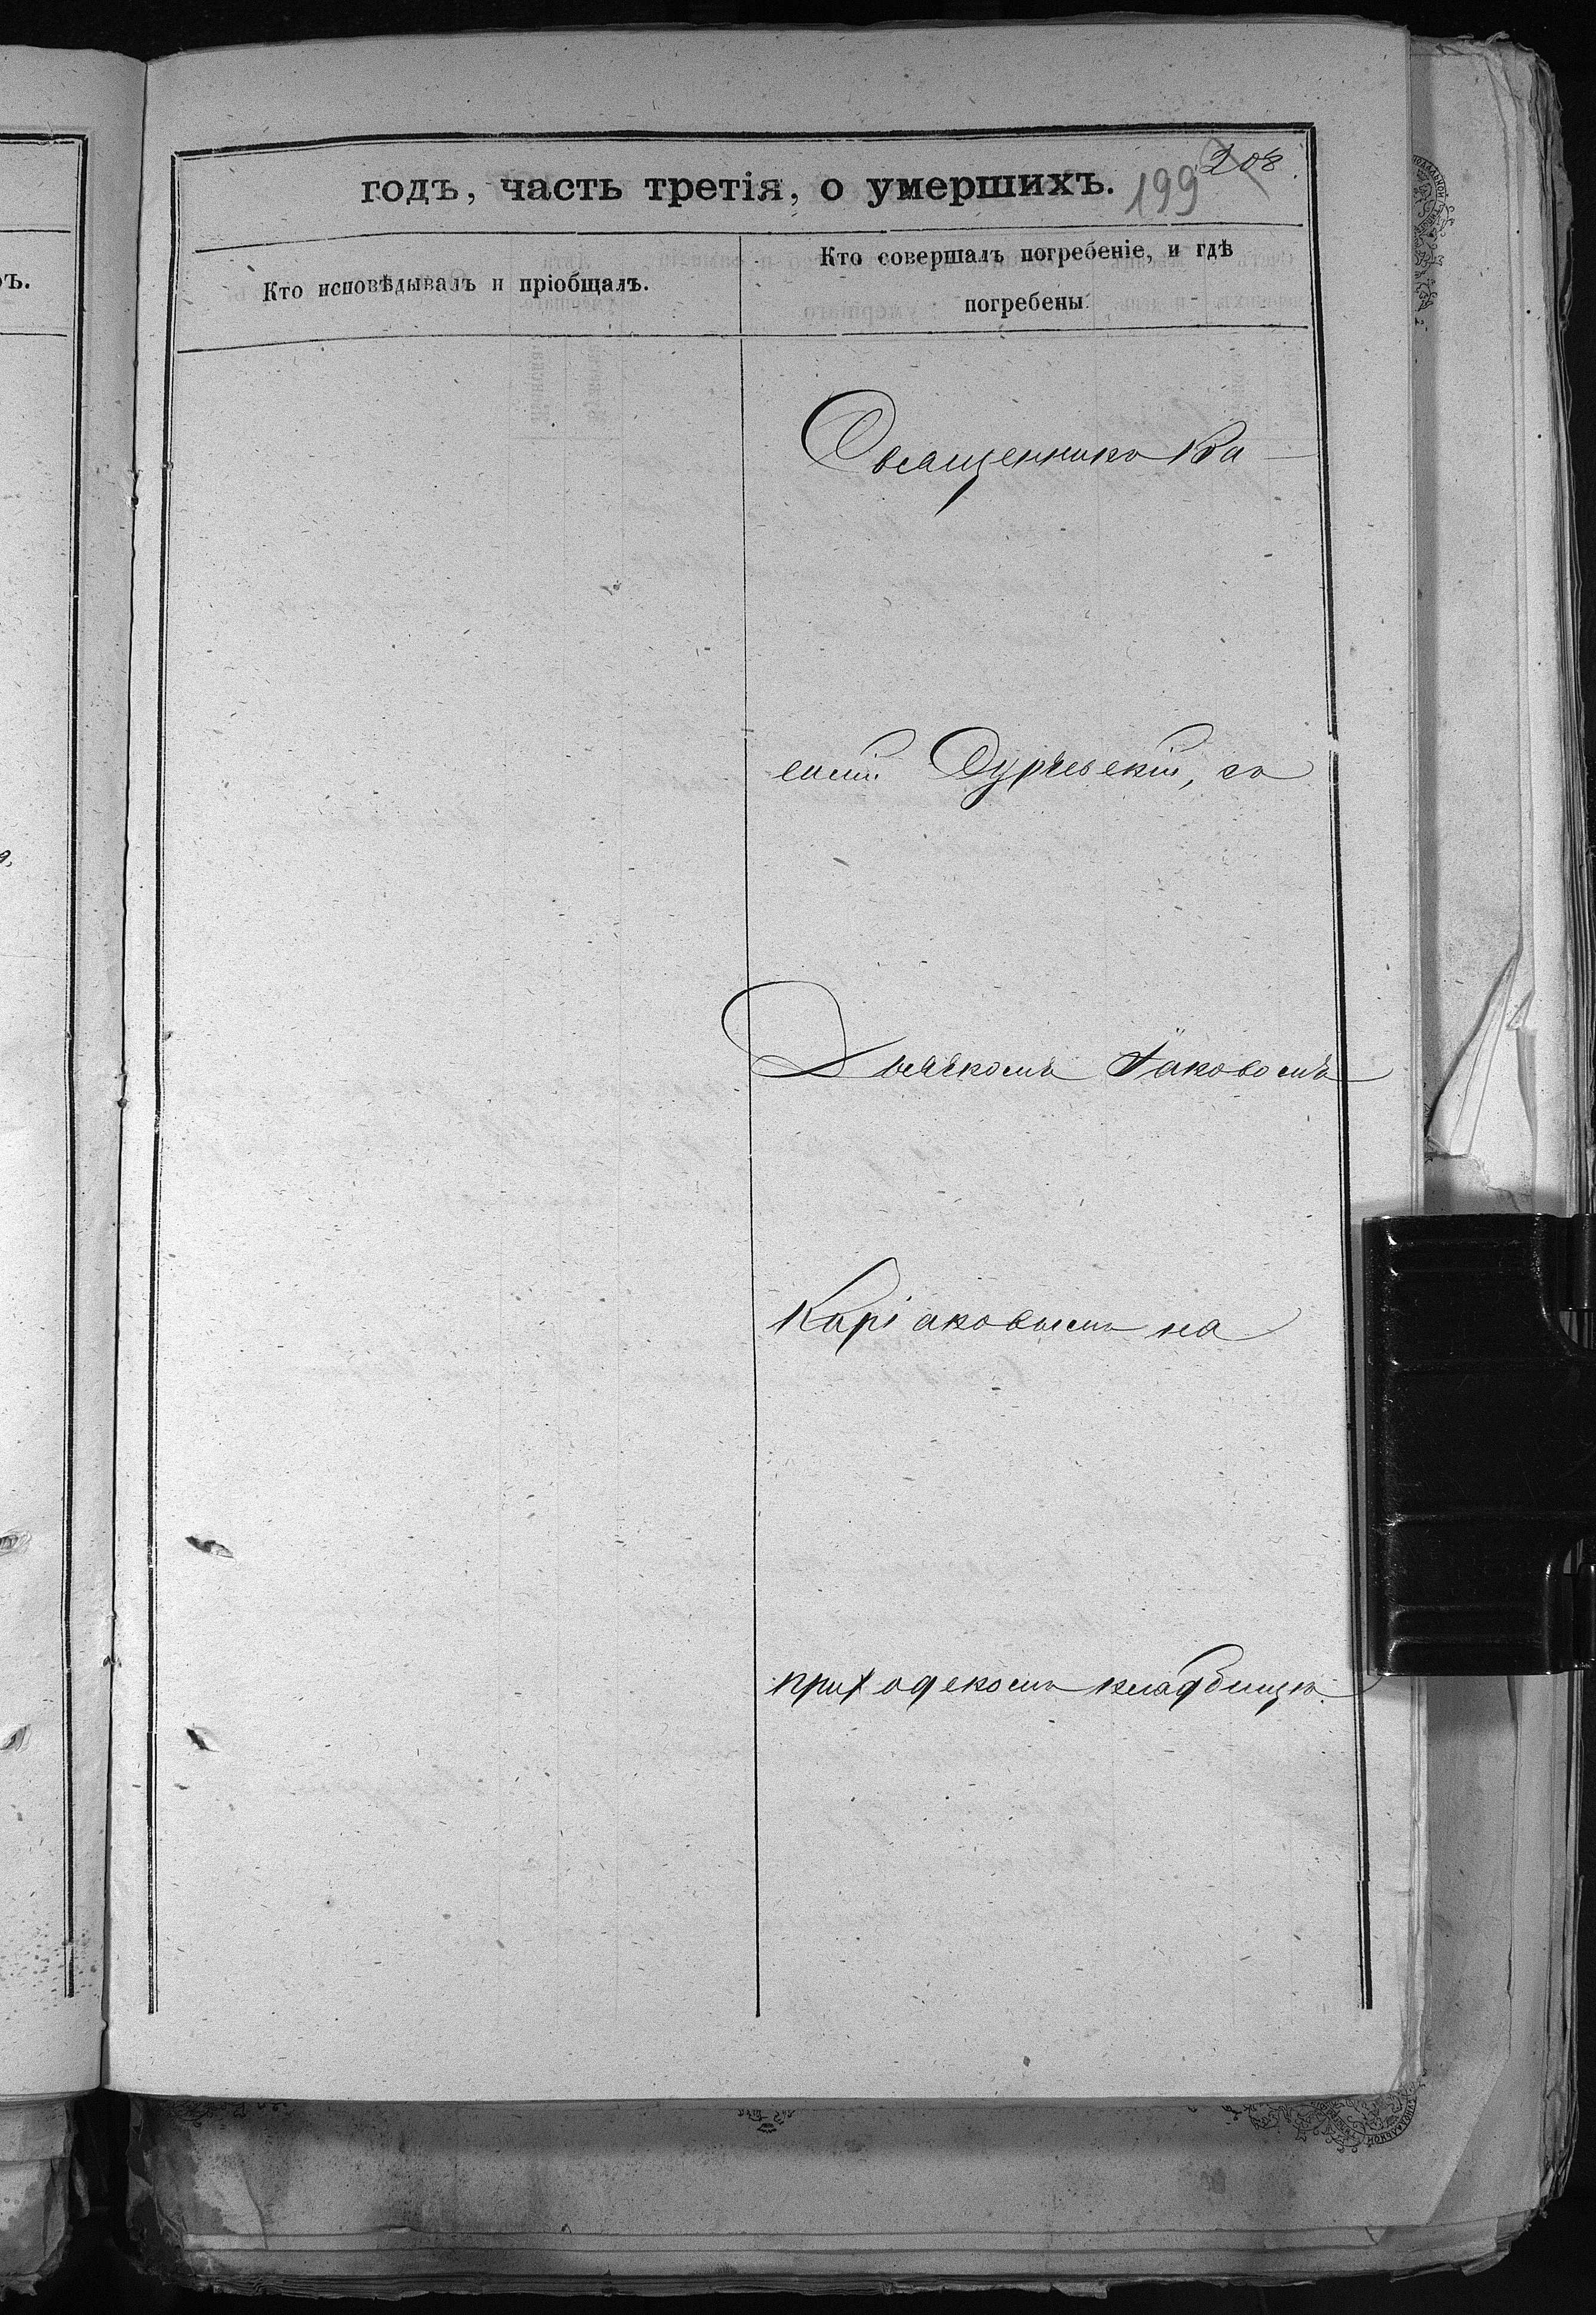 годъ, часть третія, о умершихъ.
199
208.
Кто исповѣдывалъ и пріобщалъ.
Кто совершалъ погребеніе, и гдѣ
погребены.
Священникъ Ва-
силій Сурчевскій, съ
Дьячкомъ Іаковомъ
Киріаковымъ на
приходскомъ кладбищѣ.